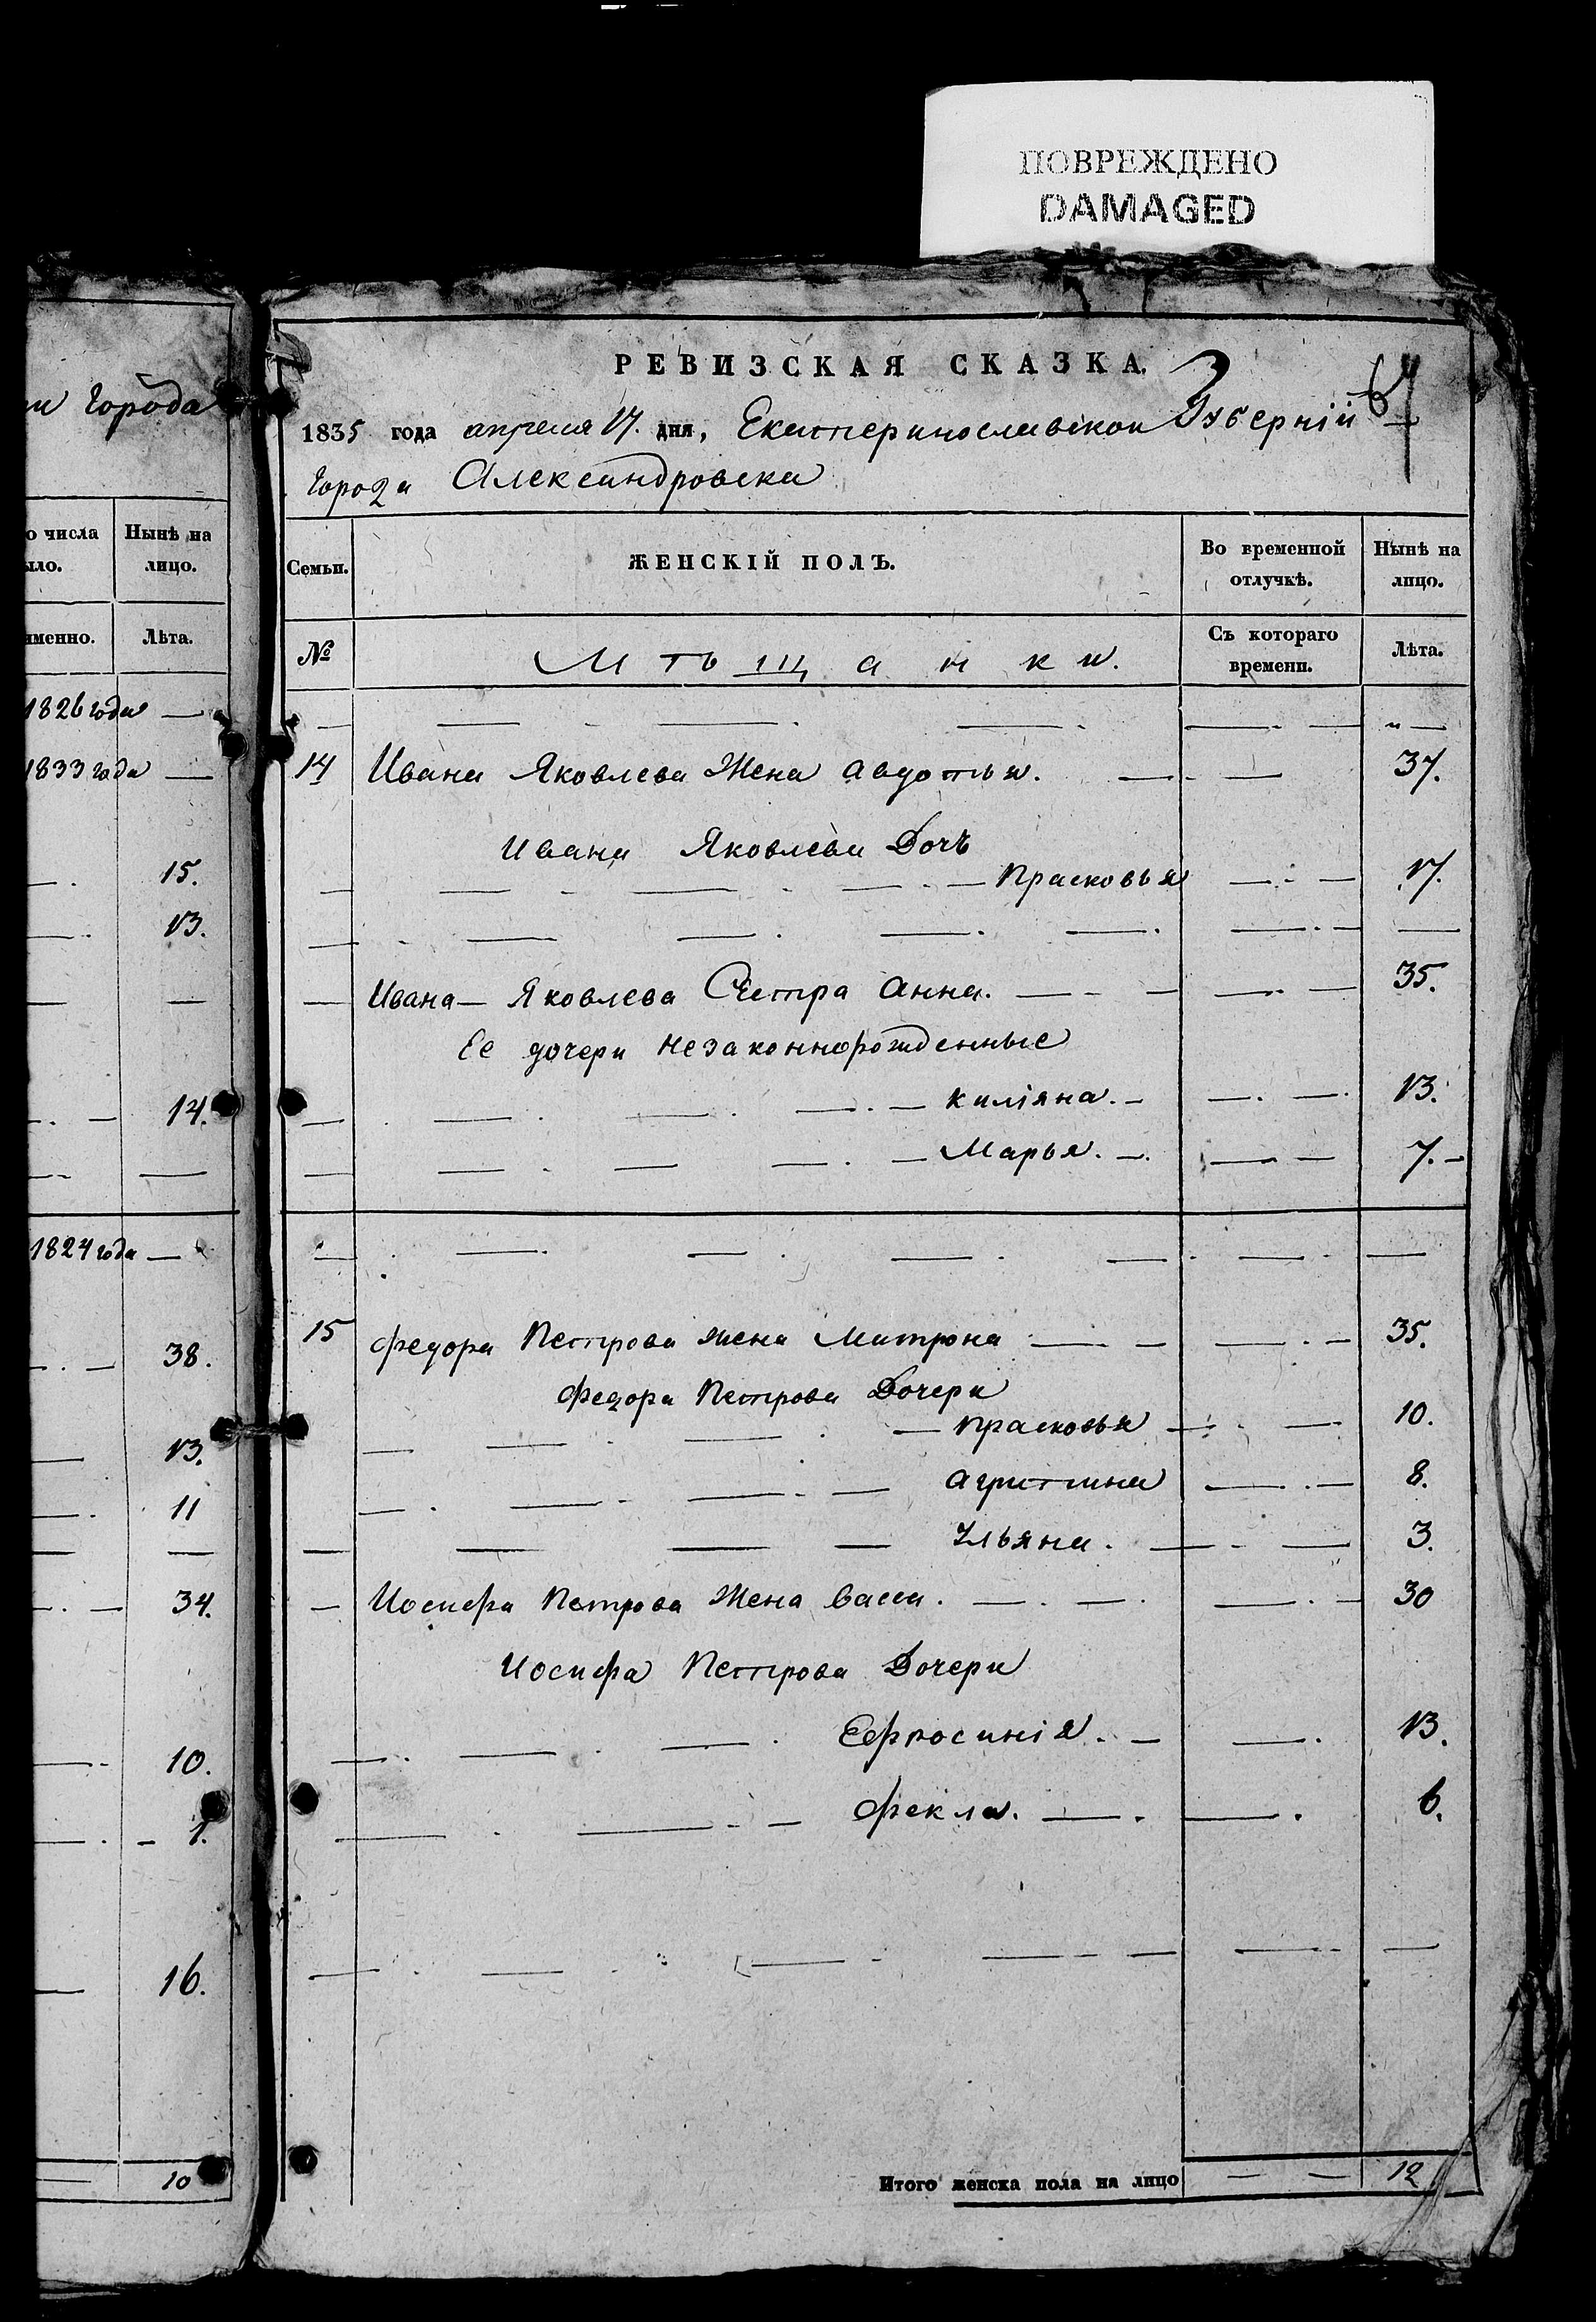 ПОВРЕЖДЕНО
DAMAGED
и Города
о числа
ыло.
Нынѣ на
лицо.
именно.
Лѣта.
1826 года —
1833 года —
15.
13.
14.
1824 года —
38.
13.
11
34.
10.
1.
16.
10
РЕВИЗСКАЯ СКАЗКА.
1835 года апреля 17. дня, Екатеринославской Губерніи
города Александровска
Семьи.
ЖЕНСКІЙ ПОЛЪ.
Во временной
отлучкѣ.
Нынѣ на
лицо.
№
Мѣщанки.
Съ котораго
времени.
Лѣта.
14 Ивана Яковлева Жена Авдотья. 37.
Ивана Яковлева Дочь
Прасковья 17.
Ивана Яковлева Сестра Анна. 35.
Ее дочери незаконнорожденные
Киліяна. 13.
Марья. 7.
15 Федора Петрова жена Матрона 35.
Федора Петрова Дочери
Прасковья 10.
Агрипина 8.
Ульяна. 3.
Иосифа Петрова Жена Васса. 30
Иосифа Петрова Дочери
Ефросинія. 13.
Фекла. 6.
Итого женска пола на лицо 12